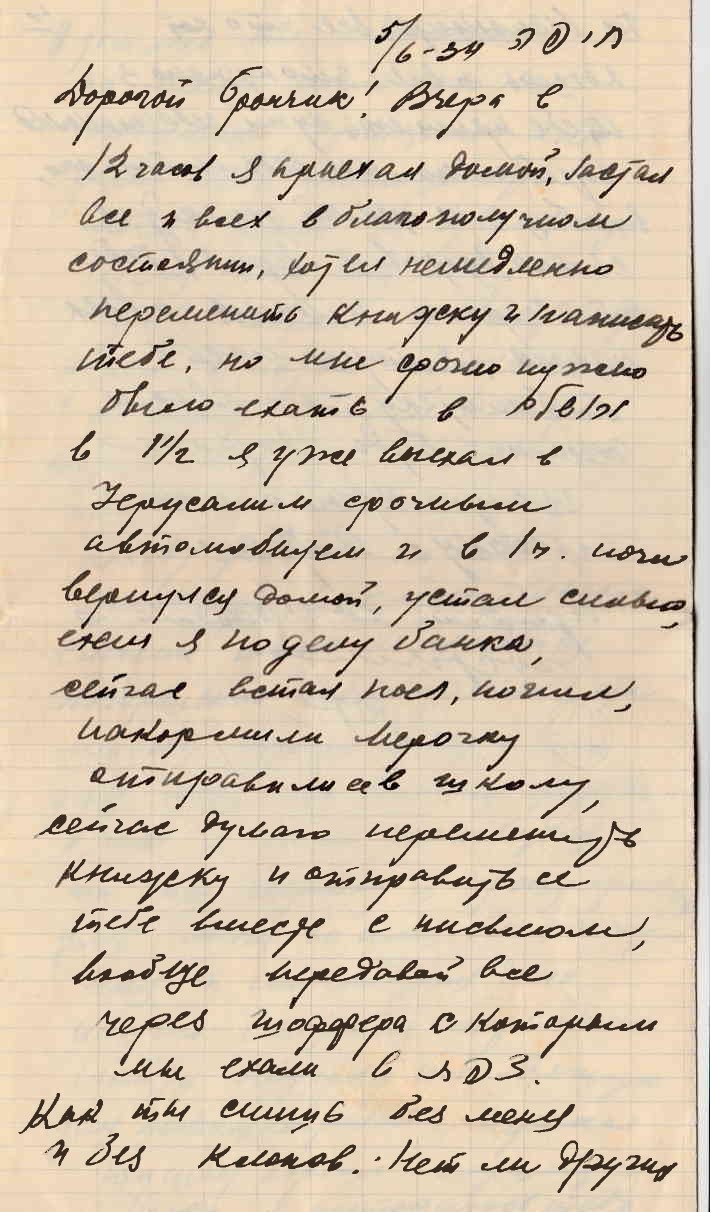 5/6-34 חיפה
Дорогой Брончик! Вчера в
12 часов я приехал домой, застал
все и всех в благополучном
состоянии, хотел немедленно
переменить книжку и написать
тебе, но мне срочно нужно
было ехать в
в 1 1/2 я уже выехал в
Иерусалим срочным
автомобилем и в 1 ч. ночи
вернулся домой, устал сильно,
ехал я по делу банка,
сейчас встал поел, попил,
накормили Мерочку
отправились в школу,
сейчас думаю переменить
книжку и отправить ее
тебе вместе с письмом,
вообще передавай все
через шоффера с которым
мы ехали в צפת.
Как ты спишь без меня
и без клопов. Нет ли других